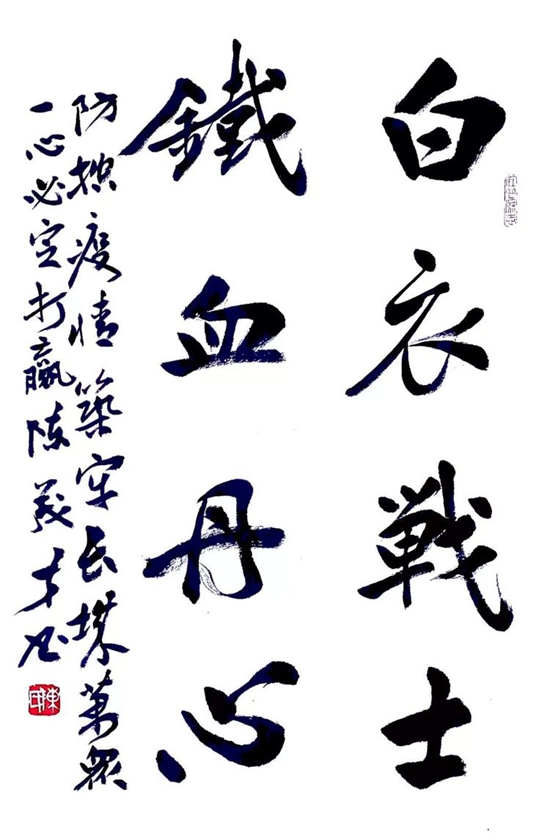 白衣戦士
鐵血丹心
防控疫情築牢长城萬眾
一心必定打贏陈義才书